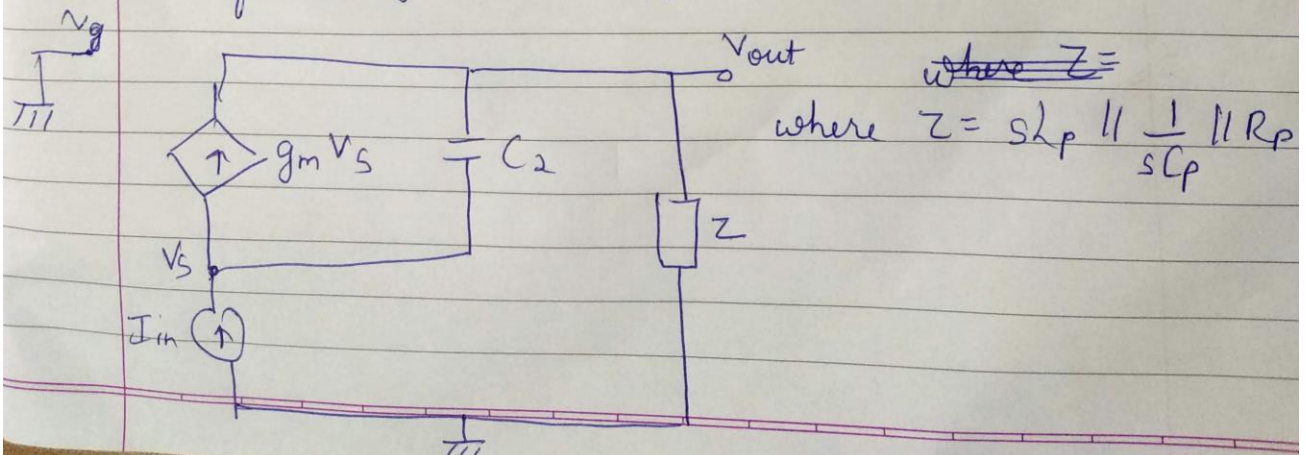 Vg
Vout
where Z=
where Z = sLp || 1/sCp || Rp
gm Vs
C2
Z
Vs
Iin